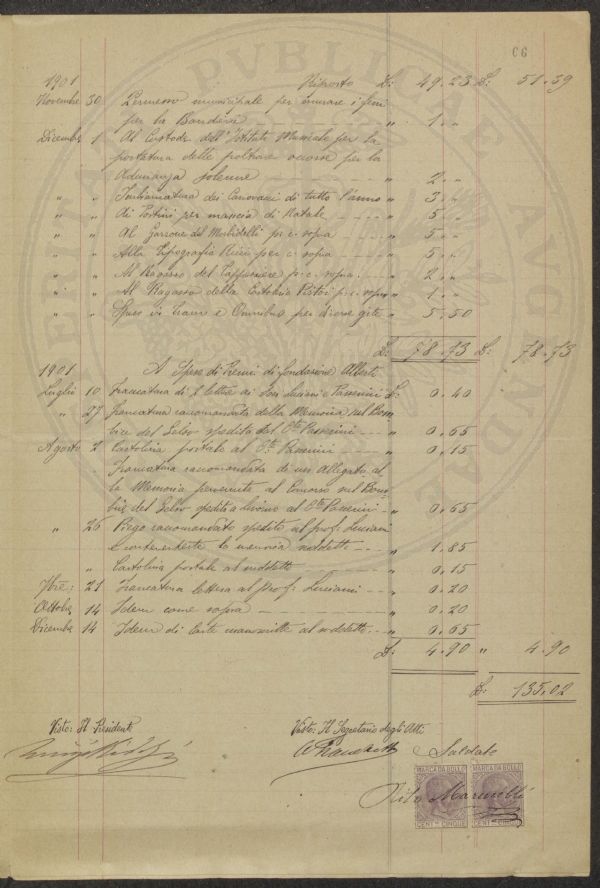 66
1901 Riporto £: 49.23 £: 51.39
Novembre 30 Permesso municipale per murare i ferri
per la Bandiera - - - " 1. "
Dicembre 1 Al Custode dell'Istituto Musicale per la
portatura delle poltrone occorse per la
Adunanza solenne - - - " 2. "
" " Imbiancatura dei Canovacci di tutto l'anno " 3. "
" " Ai Postini per mancia di Natale - - - " 5. "
" " Al Garzone del Morbidelli p. c. sopra - - " 5. "
" " Alla Tipografia Ricci per c. sopra - - " 5. "
" " Al Ragazzo del Tappezziere p. c. sopra - " 2. "
" " Al Ragazzo della Cartoleria Pistoi p. c. sopra " 1. "
" " Spese in Trams e Omnibus per diverse gite " 5.50
£: 78.73 £: 78.73
1901 A Spese di Premi di fondazione Alberti
Luglio 10 Francatura di 2 lettere ai Sori Luciani e Passerini £: 0.40
" 27 Francatura raccomandata della Memoria sul Bom
bice del Gelso spedita del Passerini - - " 0.65
Agosto 2 Cartolina postale al Passerini - - " 0.15
Francatura raccomandata di un Allegato al
la Memoria pervenuta al Concorso sul Bom
bice del Gelso spedito al Passerini - " 0.65
" 26 Piego raccomandato spedito al prof. Luciani
e contenente la memoria suddetta - - - " 1.85
" Cartolina postale al suddetto - - - " 0.15
7bre: 21 Francatura lettera al Prof. Luciani - - - " 0.20
Ottobre 14 Idem come sopra - - - " 0.20
Dicembre 14 Idem di Carte manoscritte al suddetto - - " 0.65
£: 4.90 " 4.90
£: 135.02
Visto: Il Presidente Visto: Il Segretario degli Atti
Saldato
MARCA DA BOLLO MARCA DA BOLLO
Marinelli
CENT. CINQUE CENT. CINQUE